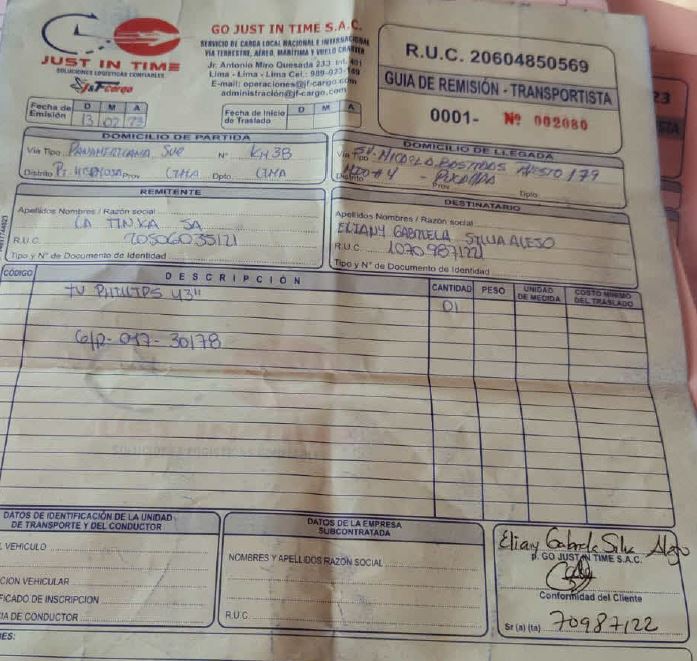 JUST IN TIME
SOLUCIONES LOGÍSTICAS CONFIABLES
J&F cargo
GO JUST IN TIME S.A.C.
SERVICIO DE CARGA LOCAL NACIONAL E INTERNACIONAL
VÍA TERRESTRE, AÉREO, MARÍTIMA Y VUELO CHARTER
Jr. Antonio Miro Quesada 233 Int. 401
Lima - Lima - Lima Cel.: 989-023-149
E-mail: operaciones@jf-cargo.com
administración@jf-cargo.com
R.U.C. 20604850569
GUIA DE REMISIÓN - TRANSPORTISTA
0001- Nº 002080
Fecha de Emisión D M A
13 02 23
Fecha de Inicio de Traslado D M A
DOMICILIO DE PARTIDA
Vía Tipo PANAMERICANA SUR Nº KM38
Distrito Pt HERMOSA Prov LIMA Dpto. LIMA
DOMICILIO DE LLEGADA
Vía Tipo AV. MICAELA BASTIDAS PUESTO 179
Distrito Prov
REMITENTE
Apellidos Nombres / Razón social
LA TINKA SA
R.U.C. 20506035121
Tipo y N° de Documento de Identidad
DESTINATARIO
Apellidos Nombres / Razón social
ELIANY GABRIELA SILVA ALEJO
R.U.C.
Tipo y N° de Documento de Identidad
CÓDIGO DESCRIPCIÓN CANTIDAD PESO UNIDAD DE MEDIDA COSTO MÍNIMO DEL TRASLADO
TV PHILIPS 43" 01
G/R- 017- 30178
DATOS DE IDENTIFICACIÓN DE LA UNIDAD DE TRANSPORTE Y DEL CONDUCTOR
VEHICULO
CION VEHICULAR
FICADO DE INSCRIPCION
IA DE CONDUCTOR
DATOS DE LA EMPRESA SUBCONTRATADA
NOMBRES Y APELLIDOS RAZON SOCIAL
R.U.C.
Eliany Gabriela Silva Alejo
p. GO JUST IN TIME S.A.C.
Conformidad del Cliente
Sr (a) (ta) 70987122
NES:
23